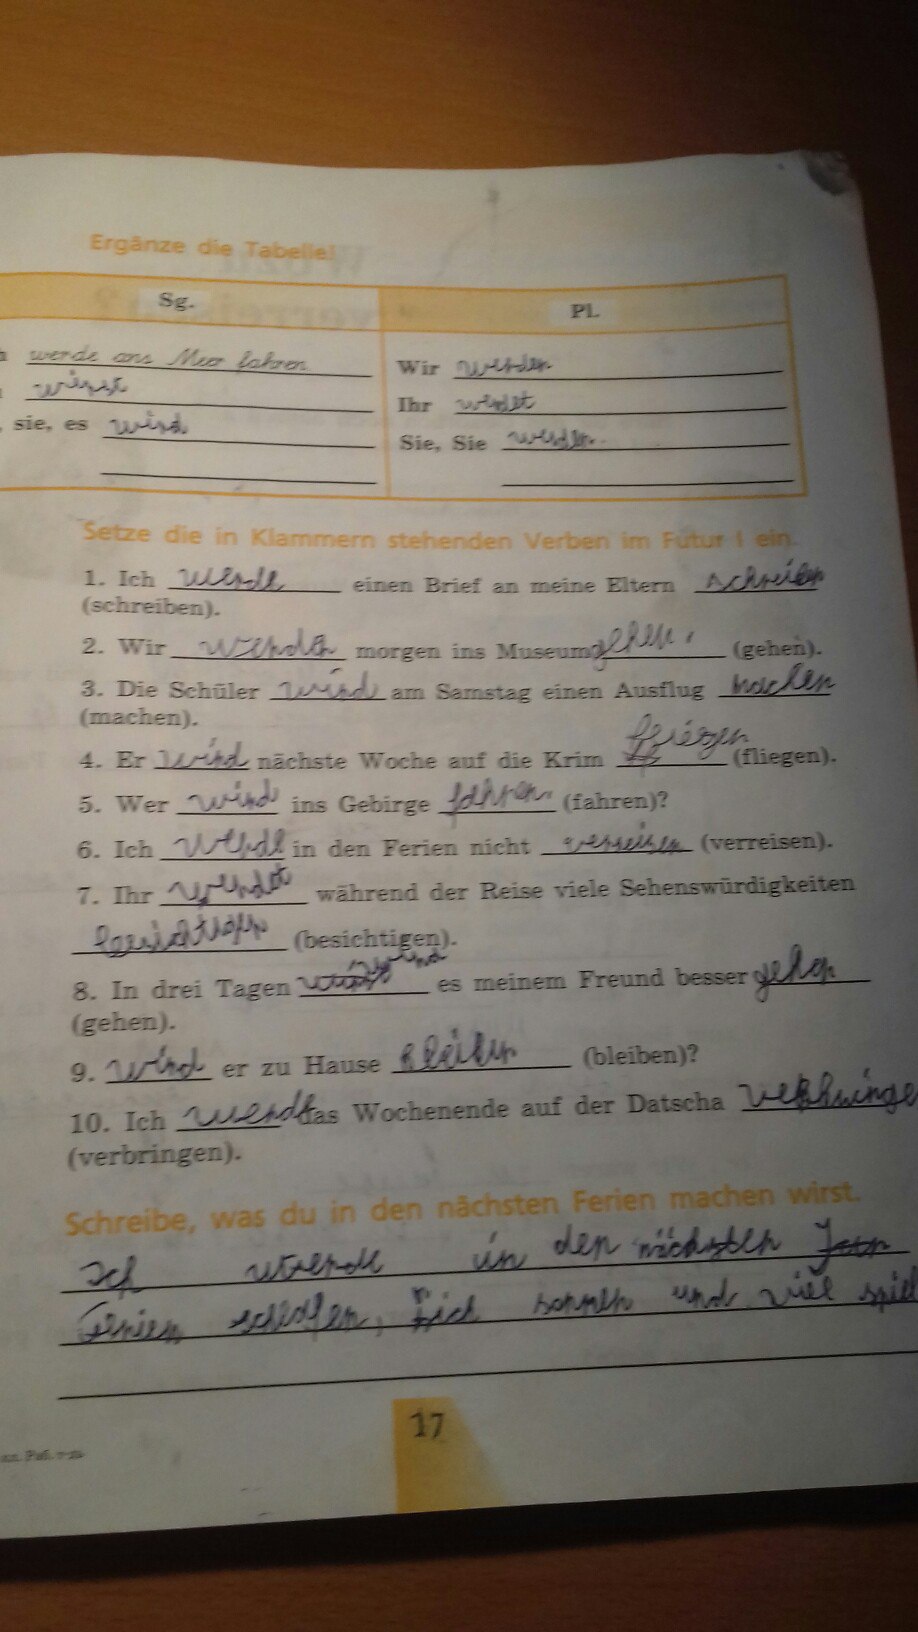 Ergänze die Tabelle!
Sg. Pl.
werde ans Meer fahren
Wir werden
wirst
Ihr werdet
sie, es wird
Sie, Sie werden
Setze die in Klammern stehenden Verben im Futur I ein.
1. Ich werde einen Brief an meine Eltern schreiben
(schreiben).
2. Wir werden morgen ins Museum gehen. (gehen).
3. Die Schüler wird am Samstag einen Ausflug machen
(machen).
4. Er wird nächste Woche auf die Krim fliegen (fliegen).
5. Wer wird ins Gebirge fahren. (fahren)?
6. Ich werde in den Ferien nicht verreisen (verreisen).
7. Ihr werdet während der Reise viele Sehenswürdigkeiten
(besichtigen).
8. In drei Tagen wird es meinem Freund besser gehen
(gehen).
9. wird er zu Hause bleiben (bleiben)?
10. Ich werde das Wochenende auf der Datscha
(verbringen).
Schreibe, was du in den nächsten Ferien machen wirst.
Ich werde in den nächsten
Ferien schlafen, mich sonnen und viel spiel
17